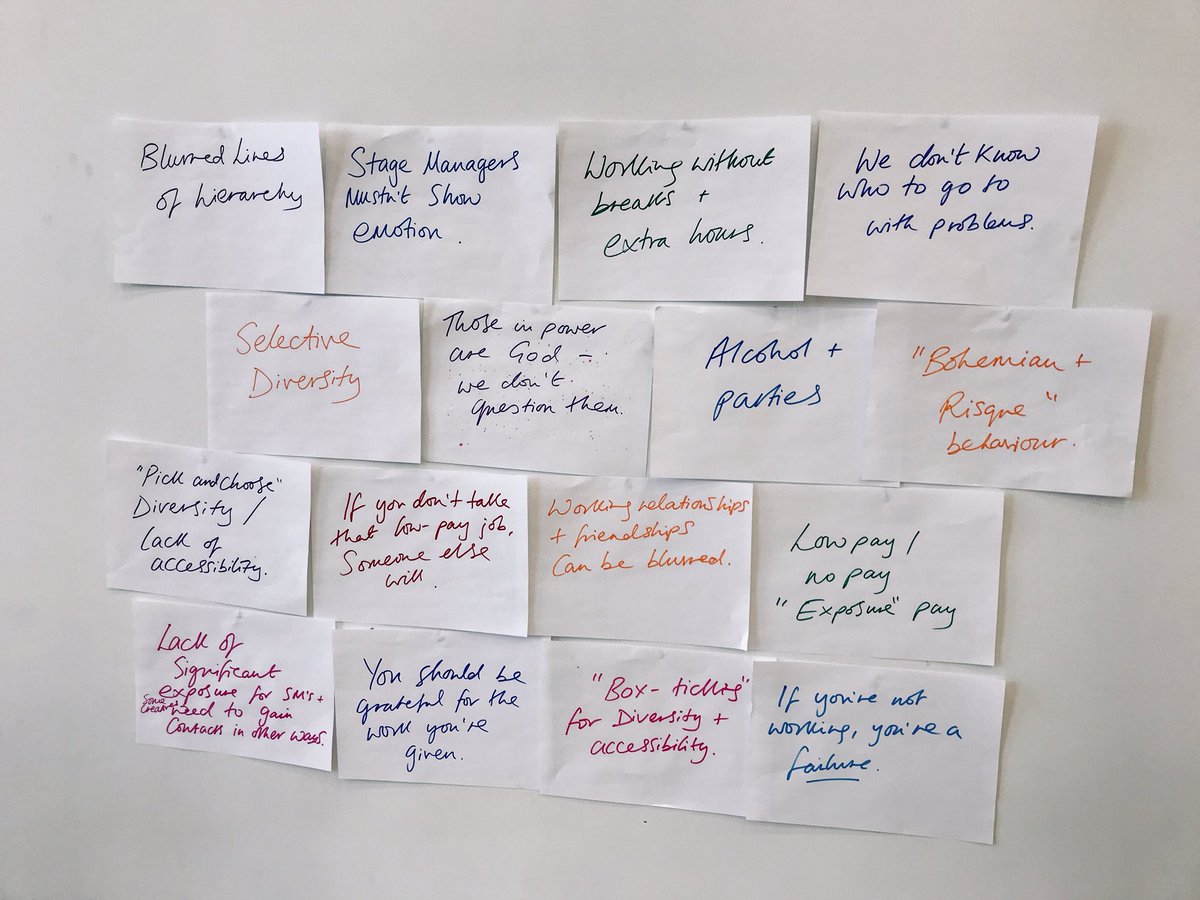 Blurred Lines
of hierarchy
Stage Managers
Mustn't Show
emotion.
Working without
breaks +
extra hours.
We don't know
who to go to
with problems.
Selective
Diversity
Those in power
are God –
we don't
question them.
Alcohol +
parties
"Bohemian +
Risque"
behaviour.
"Pick and choose"
Diversity /
lack of
accessibility.
If you don't take
that low-pay job,
Someone else
will.
Working relationships
+ friendships
Can be blurred.
Low pay /
no pay
"Exposure" pay
Lack of
Significant
exposure for SM's +
some creatives
need to gain
Contacts in other ways.
You should be
grateful for the
work you're
given.
"Box-ticking"
for Diversity +
accessibility.
If you're not
working, you're a
failure.